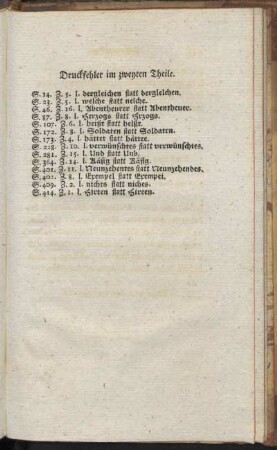 Druckfehler im zweyten Theile.
S. 14. Z. 5. l. dergleichen statt derglelchen.
S. 23. Z. 5. l. welche statt nelche.
S. 46. Z. 16. l. Abentheurer statt Abentheuer.
S. 87. Z. 8. l. Herzogs statt Hrzogs.
S. 107. Z. 6. l. heißt statt helßt.
S. 172. Z. 8. l. Soldaten statt Soldatrn.
S. 173. Z. 4. l. härtet statt härtre.
S. 228. Z. 10. l. verwünschtes statt verwünschtrs.
S. 281. Z. 15. l. Und statt Unb.
S. 364. Z. 14. l. Käfig statt Käfsg.
S. 401. Z. 11. l. Neunzehentes statt Neunzehendes.
S. 402. Z. 8. l. Exempel statt Exempei.
S. 409. Z. 2. l. nichts statt niches.
S. 414. Z. 1. l. Hirten statt Hirren.